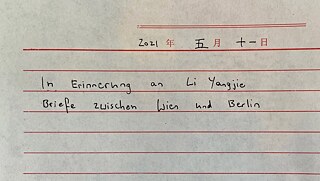 2021 年 五 月 十一 日
In Erinnerung an Li Yangjie
Briefe zwischen Wien und Berlin